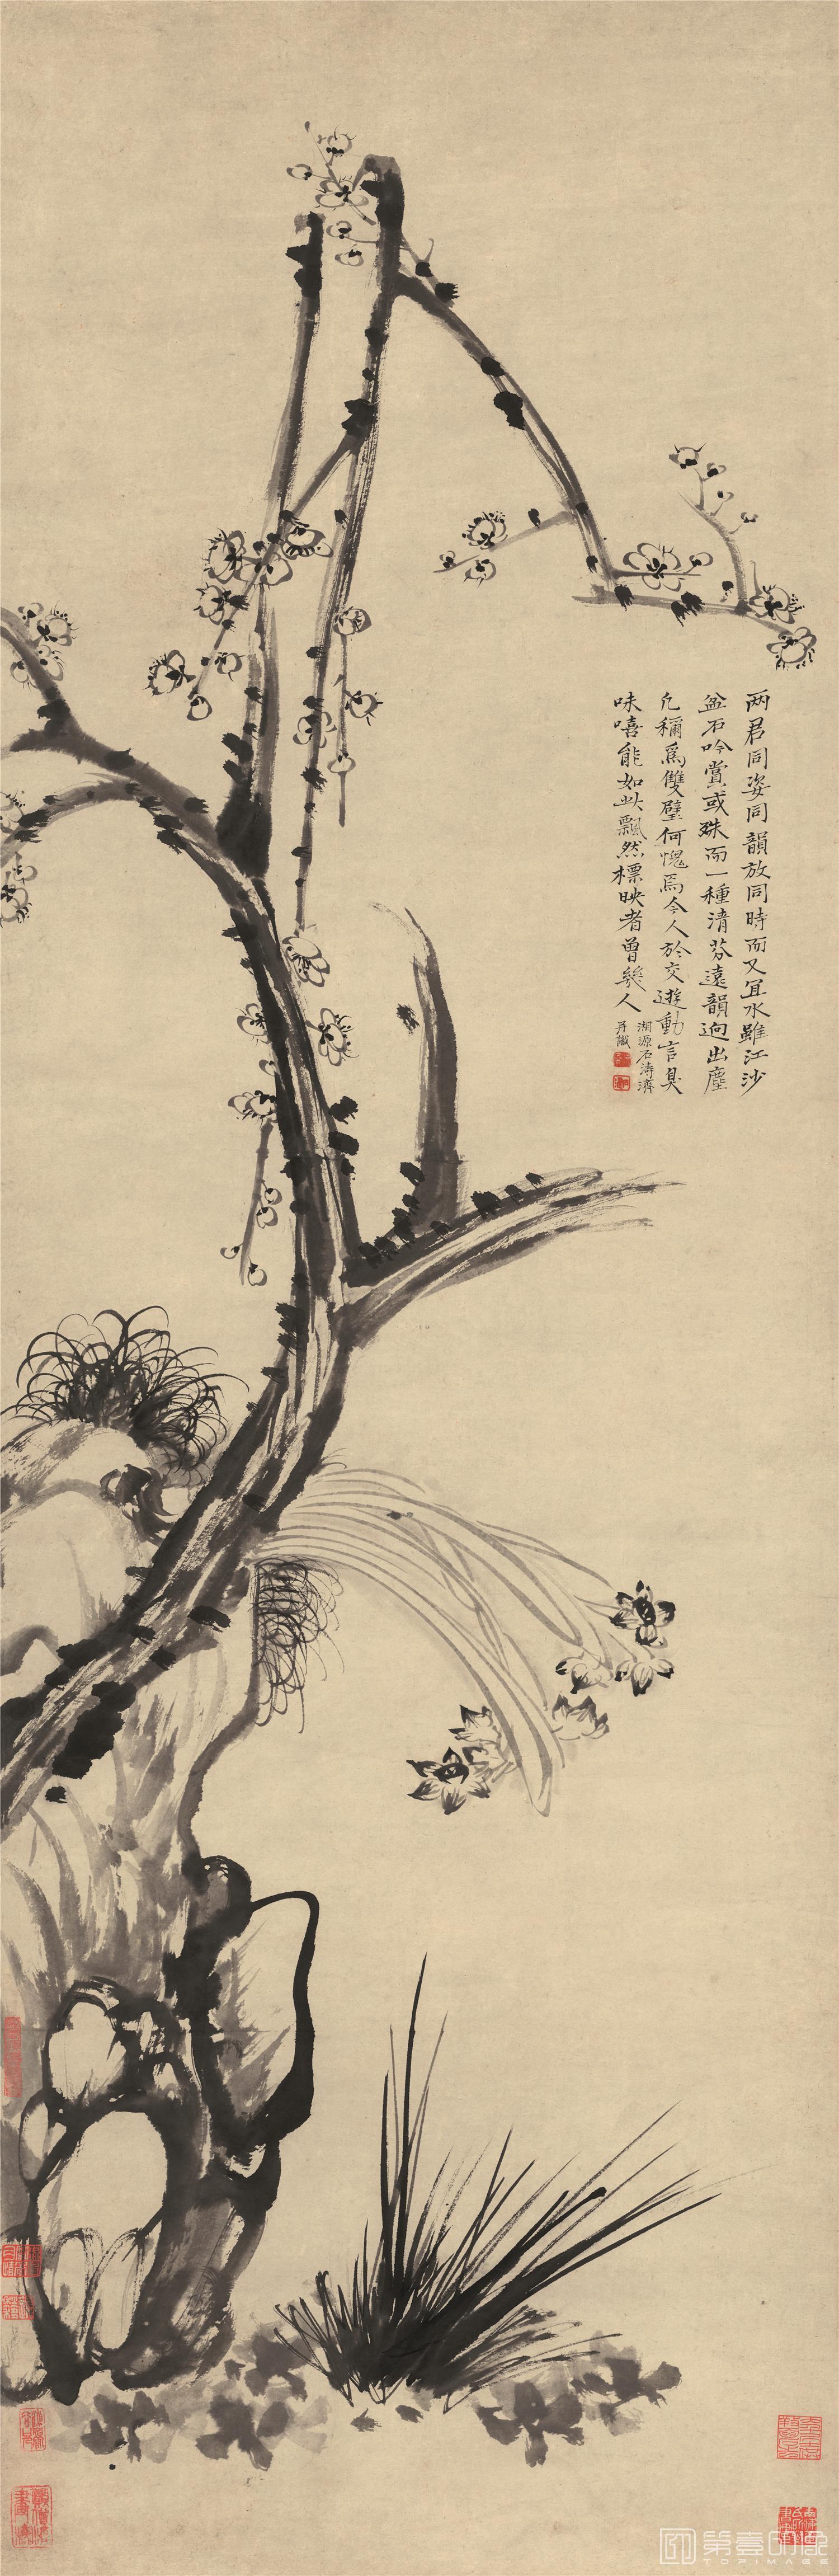 两君同姿同韻放同時而又宜水雖江沙
盆石吟賞或殊而一種清芬遠韻迥出塵
凡稱爲雙璧何愧焉今人於交遊動言臭
味嘻能如此飄然標映者曾幾人
湘源石濤濟
并識
第壹印象
TOPIMAGE